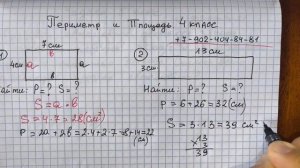 Периметр и Площадь. 4 класс
+7-902-404-84-81
7 см
в
4 см а
а
в
Найти: P = ? S = ?
S = a · b
S = 4 · 7 = 28 (см²)
P = 2a + 2b = 2·4 + 2·7 = 8 + 14 = 22
(см)
2
13 см
3 см
Найти: P = ? S = ?
P = 6 + 26 = 32 (см)
S = 3 · 13 = 39 (см²
13
× 3
39